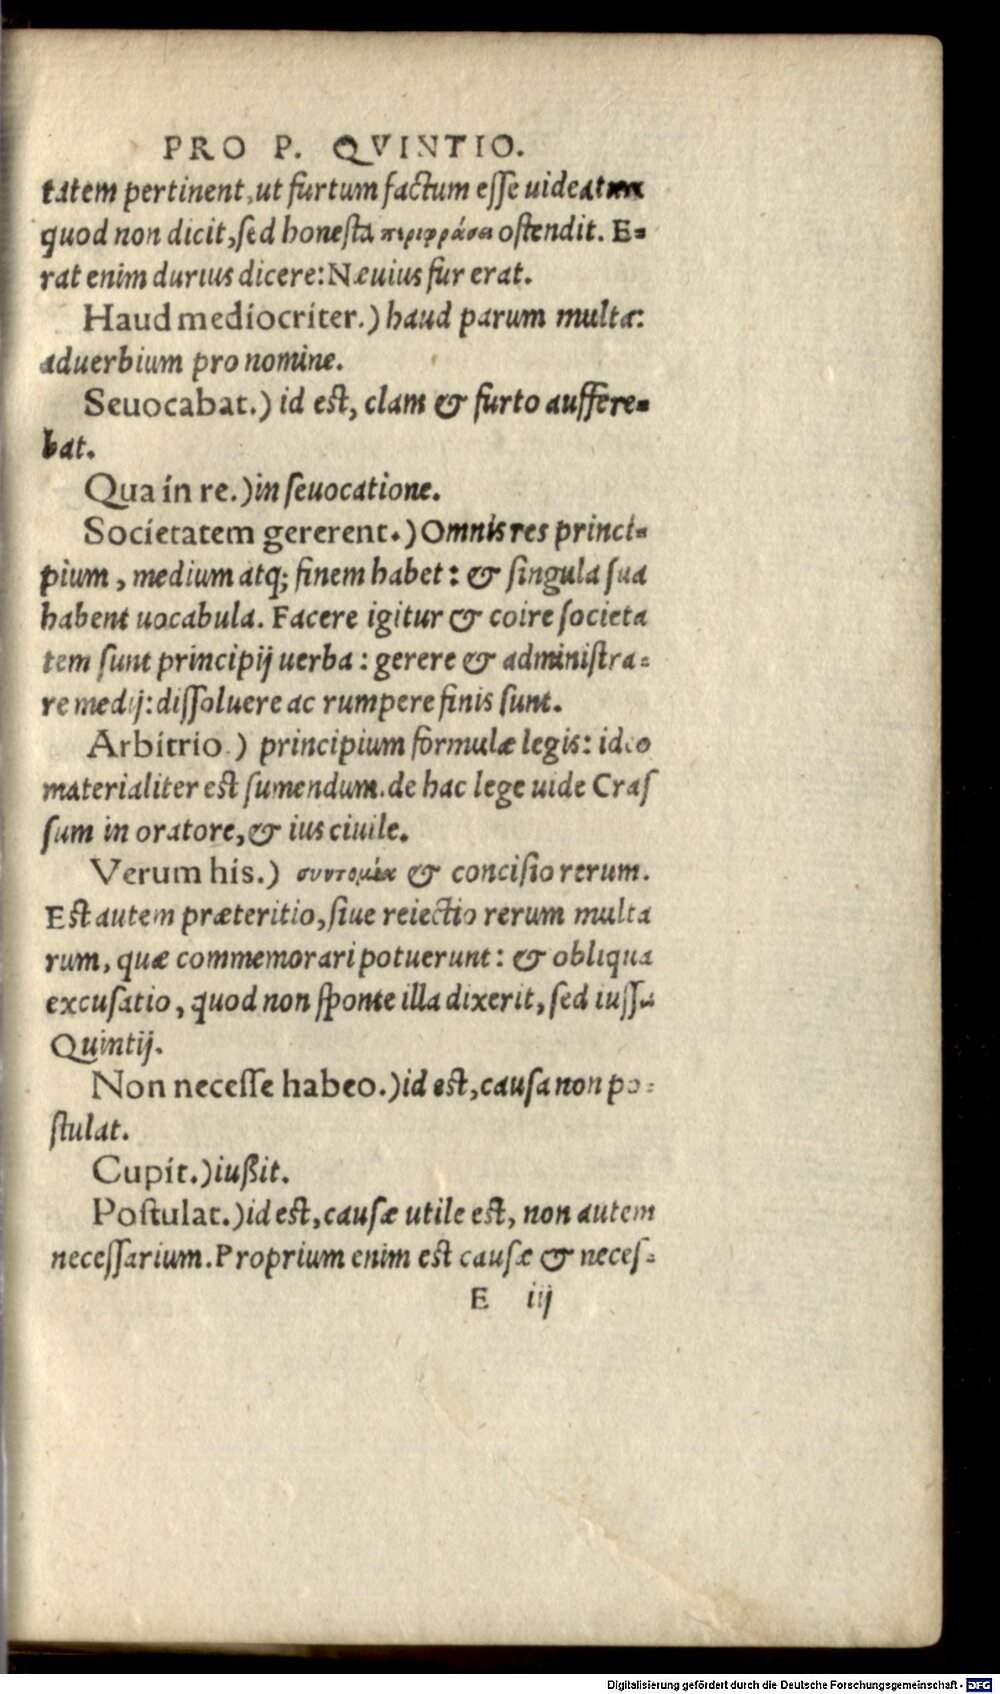 PRO P. QVINTIO.
tatem pertinent, ut furtum factum esse uideatur
quod non dicit, sed honesta περιφράσει ostendit. E-
rat enim durius dicere: Næuius fur erat.
Haud mediocriter.) haud parum multa:
aduerbium pro nomine.
Seuocabat.) id est, clam & furto auffere-
bat.
Qua in re.) in seuocatione.
Societatem gererent.) Omnis res princi-
pium, medium atq; finem habet: & singula sua
habent uocabula. Facere igitur & coire societa
tem sunt principij uerba: gerere & administra-
re medij: dissoluere ac rumpere finis sunt.
Arbitrio.) principium formulæ legis: ideo
materialiter est sumendum. de hac lege uide Cras
sum in oratore, & ius ciuile.
Verum his.) συντομία & concisio rerum.
Est autem præteritio, siue reiectio rerum multa
rum, quæ commemorari potuerunt: & obliqua
excusatio, quod non sponte illa dixerit, sed iussu
Quintij.
Non necesse habeo.) id est, causa non po-
stulat.
Cupit.) iußit.
Postulat.) id est, causæ utile est, non autem
necessarium. Proprium enim est causæ & neces-
E iij
Digitalisierung gefördert durch die Deutsche Forschungsgemeinschaft - DFG